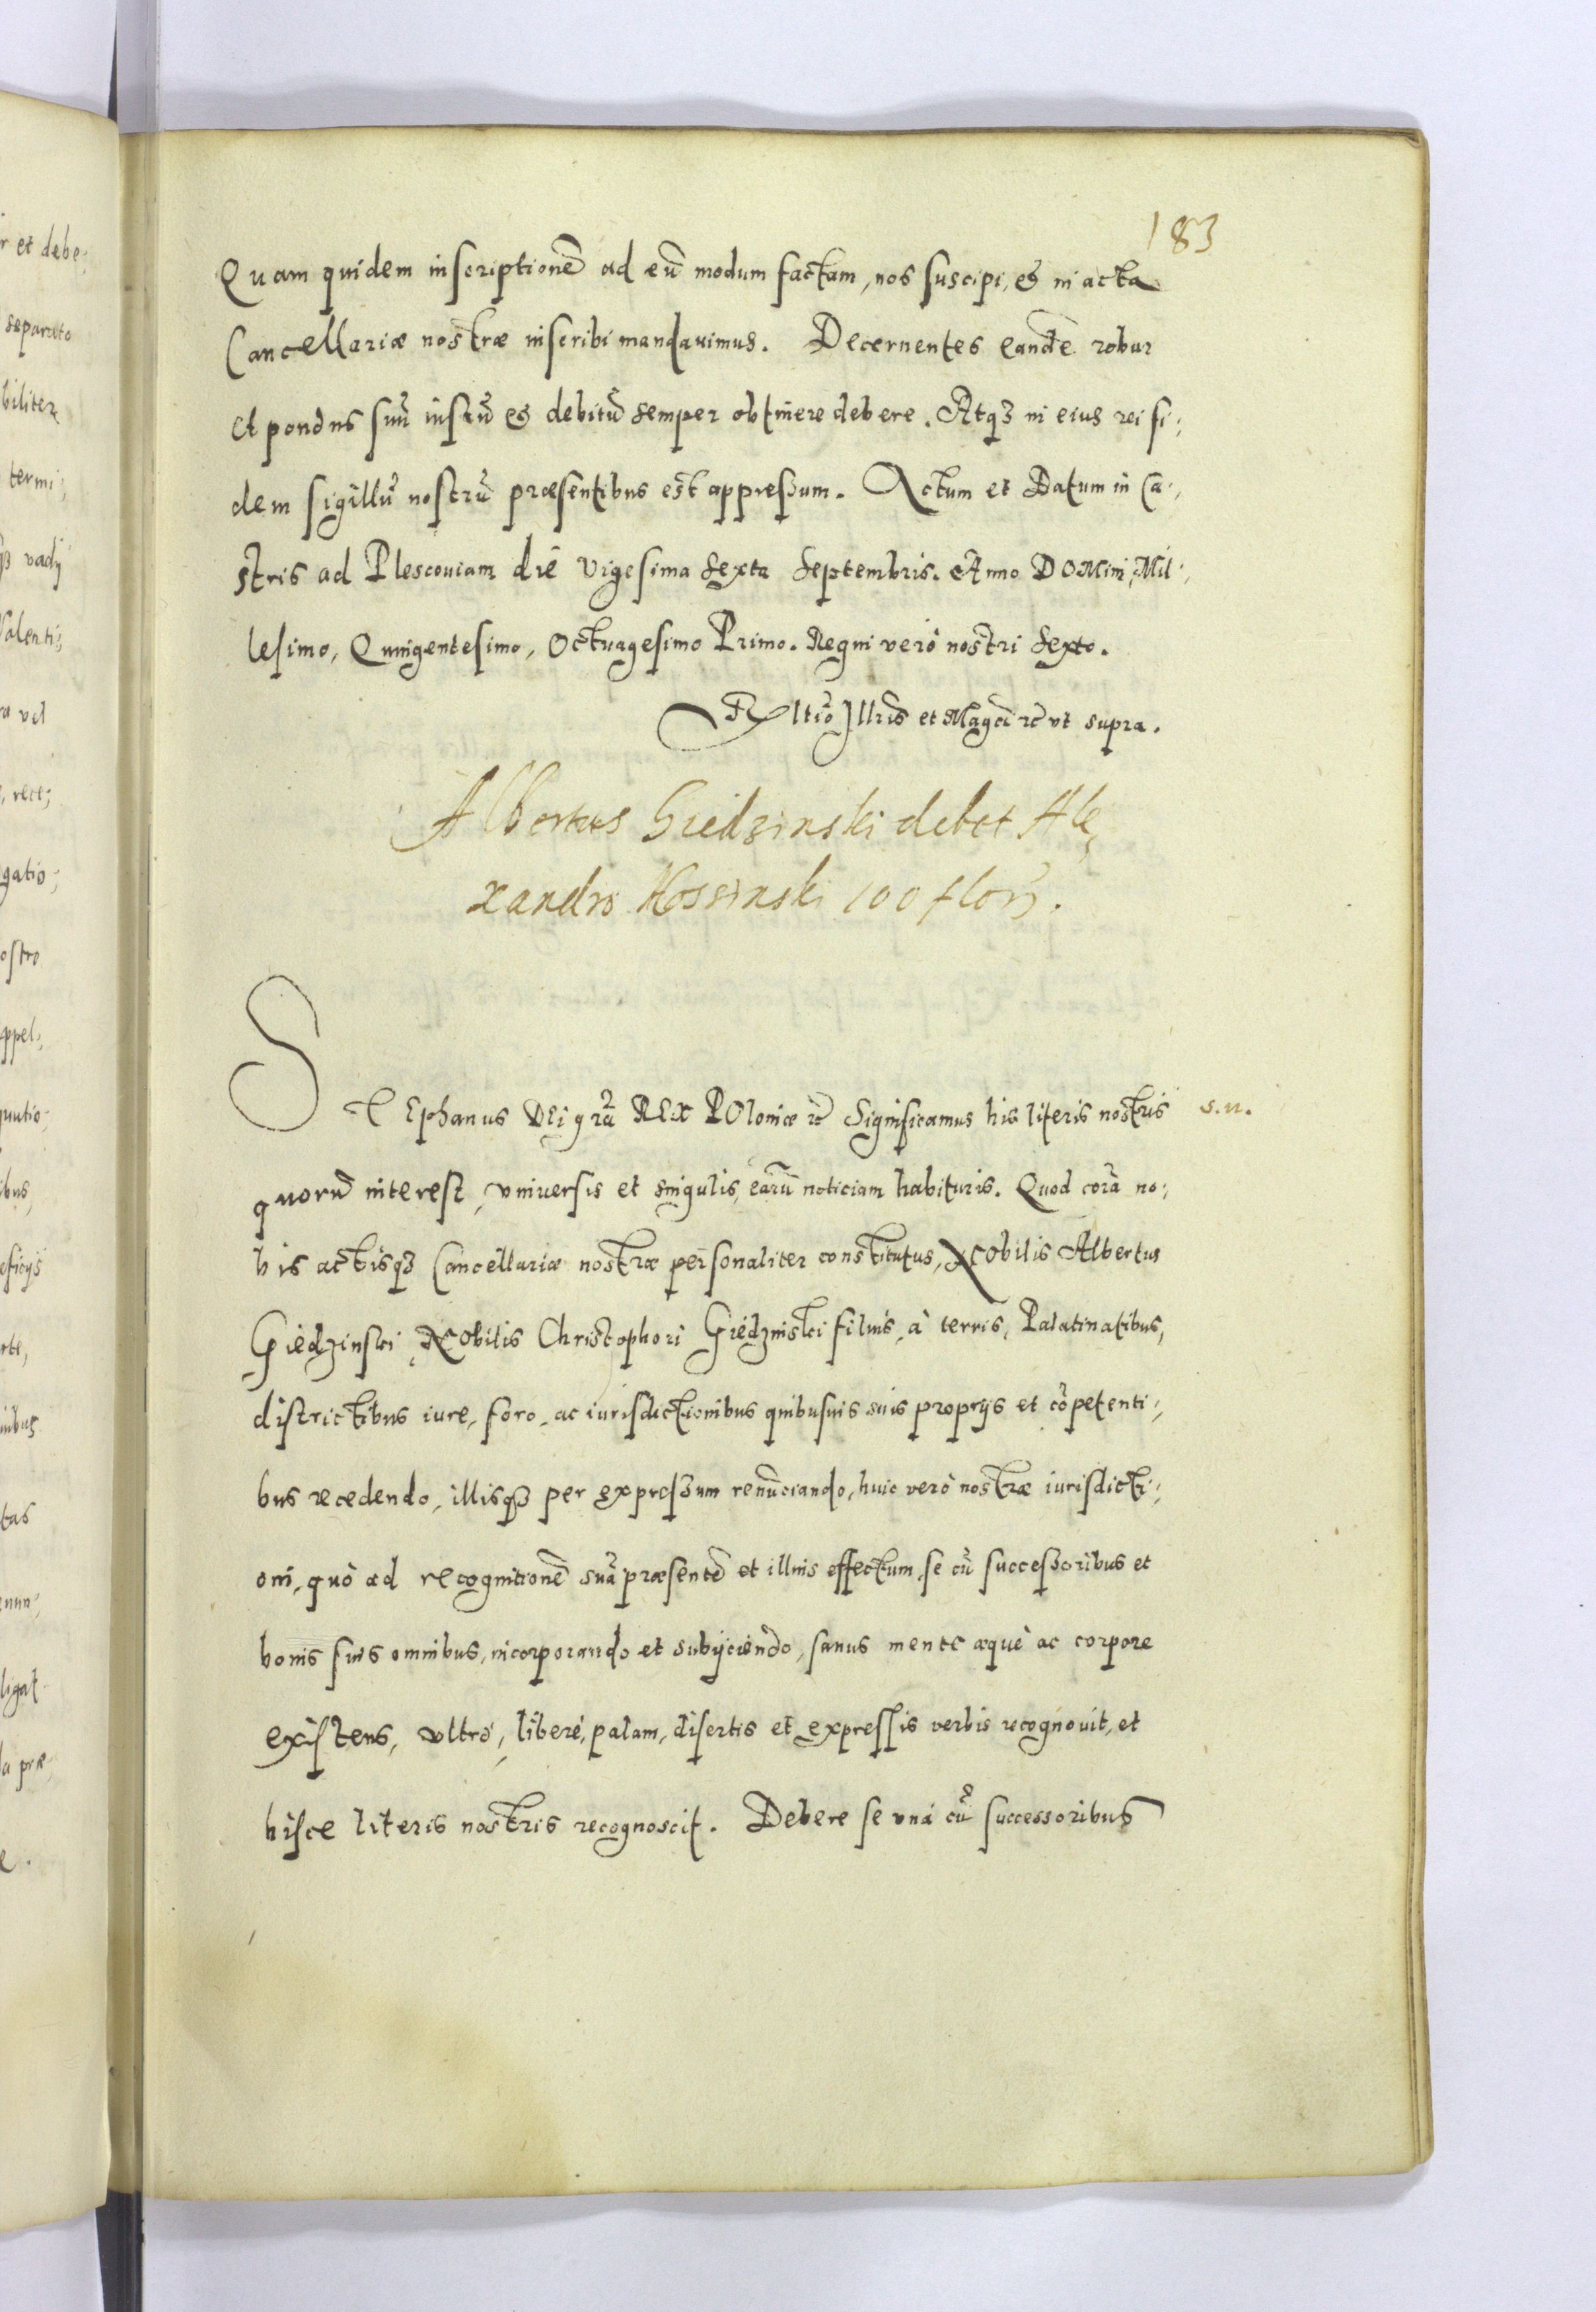 183
Quam quidem inscriptionē ad eū modum factam, nos suscipi, et in acta
Cancellariæ nostræ inscribi mandavimus. Decernentes eandē robur
et pondus suū iustū et debitū semper obtinere debere. Atqȝ in eius rei fi„
dem sigillū nostrū præsentibus est appressum. Actum et Datum in Ca„
stris ad Plescouiam die Vigesima Sexta Septembris. Anno DOMini, Mil„
lesimo, Quingentesimo, Octuagesimo Primo. Regni verò nostri Sexto.
Illris et Magci rc vt supra.
Albertus Giedzinski debet Ale„
xandro Kossinski 100 flor.
STEphanus DEi grā REX POloniæ rc Significamus his literis nostris
s.n.
quorū interest, vniuersis et singulis, earū noticiam habituris. Quod corā no„
bis actisqȝ Cancellariæ nostræ personaliter constitutus, NObilis Albertus
Giedzinski, NObilis Christophori Giedzinski filius, à terris, Palatinatibus,
districtibus iure, foro, ac iurisdictionibus quibusuis suis proprijs et cōpetenti„
bus recedendo, illisqȝ per expressum renūciando, huic verò nostræ iurisdicti„
oni, quò ad recognitionē suā præsentē et illius effectum, se cū successoribus et
bonis suis omnibus, incorporando et subijciendo, sanus mente æquè ac corpore
existens, vltrò, liberè, palam, disertis et expressis verbis recognouit, et
hisce literis nostris recognoscit. Debere se vnà cū successoribus